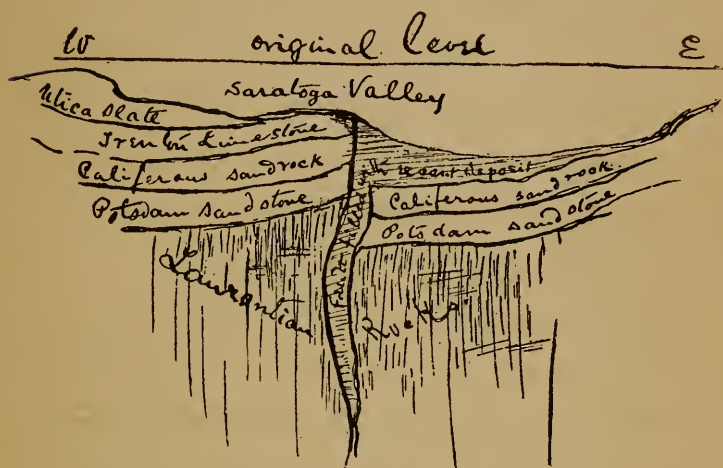 W original level E
Saratoga Valley
Utica Slate
Trenton Limestone
Califerous sandrock
Potsdam sandstone
Fault filled with recent deposit
Califerous sandrock
Potsdam sandstone
Laurentian Rocks